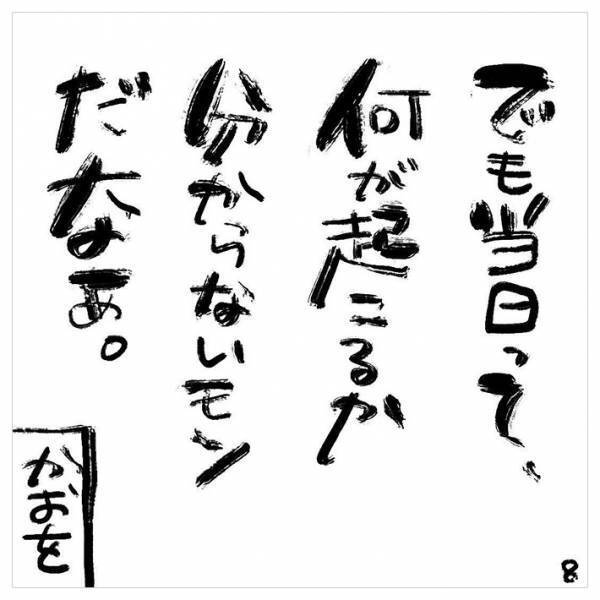 でも当日って、
何が起こるか
分からないモン
だなぁ。
かおを
8